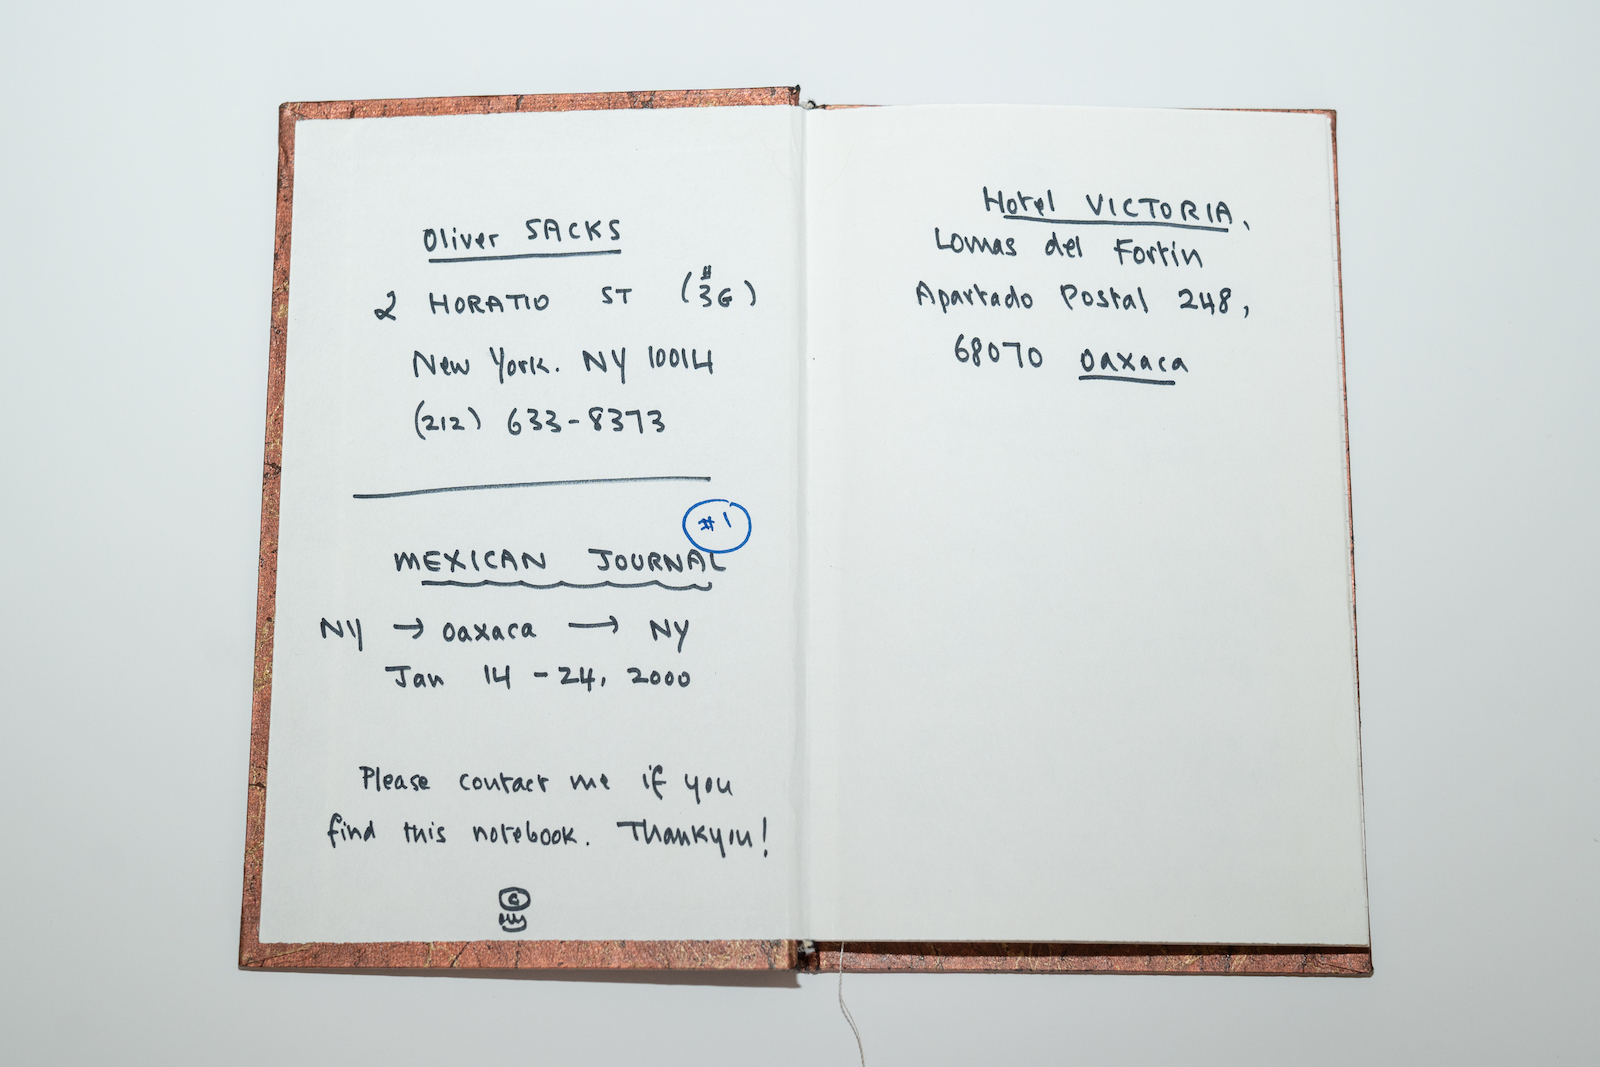 Oliver SACKS
2 HORATIO ST (#3G)
New York. NY 10014
(212) 633-8373
#1
MEXICAN JOURNAL
NY → Oaxaca → NY
Jan 14 - 24, 2000
Please contact me if you
find this notebook. Thankyou!
Hotel VICTORIA,
Lomas del Fortin
Apartado Postal 248,
68070 Oaxaca